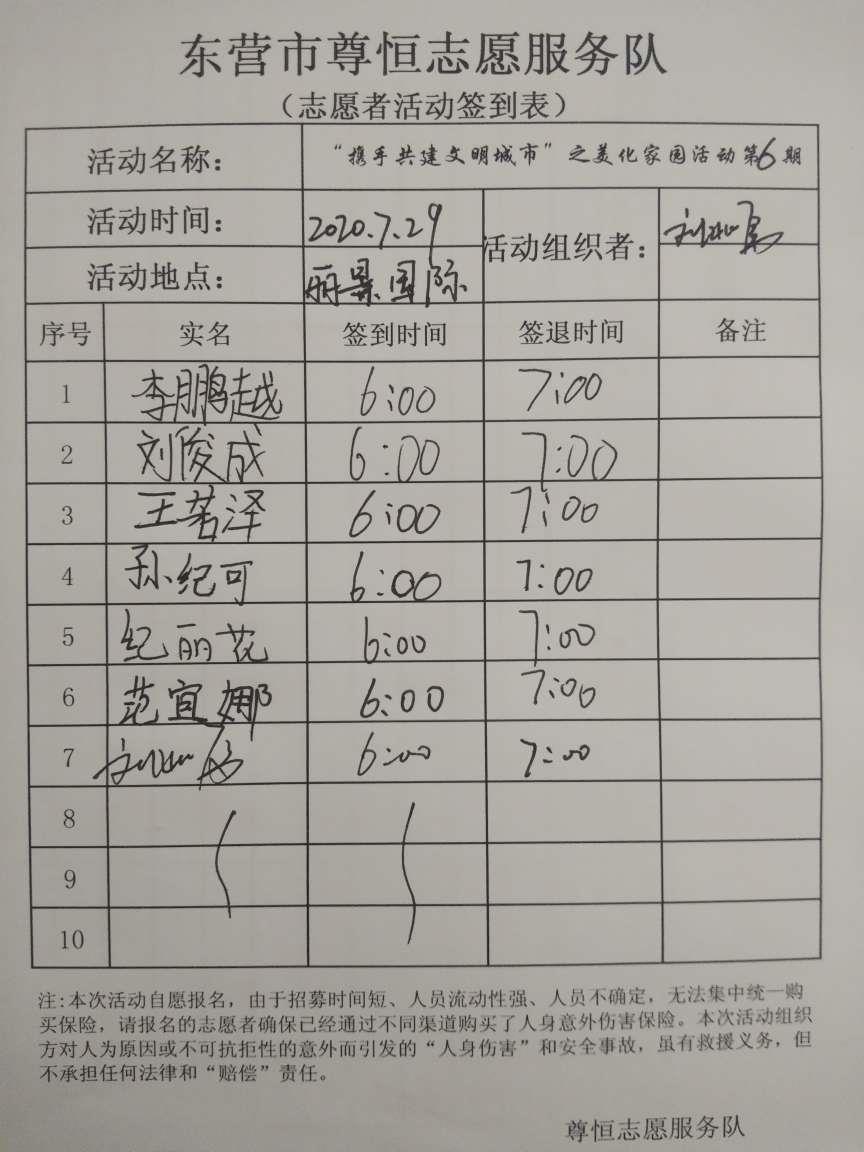 东营市尊恒志愿服务队
（志愿者活动签到表）
活动名称： “携手共建文明城市”之美化家园活动第6期
活动时间： 2020.7.29 活动组织者：
活动地点： 丽景国际
序号 实名 签到时间 签退时间 备注
1 李鹏越 6:00 7:00
2 刘俊成 6:00 7:00
3 王若泽 6:00 7:00
4 孙纪可 6:00 7:00
5 纪丽花 6:00 7:00
6 范宜娜 6:00 7:00
7 6:00 7:00
8
9
10
注:本次活动自愿报名，由于招募时间短、人员流动性强、人员不确定，无法集中统一购
买保险，请报名的志愿者确保已经通过不同渠道购买了人身意外伤害保险。本次活动组织
方对人为原因或不可抗拒性的意外而引发的“人身伤害”和安全事故，虽有救援义务，但
不承担任何法律和“赔偿”责任。
尊恒志愿服务队